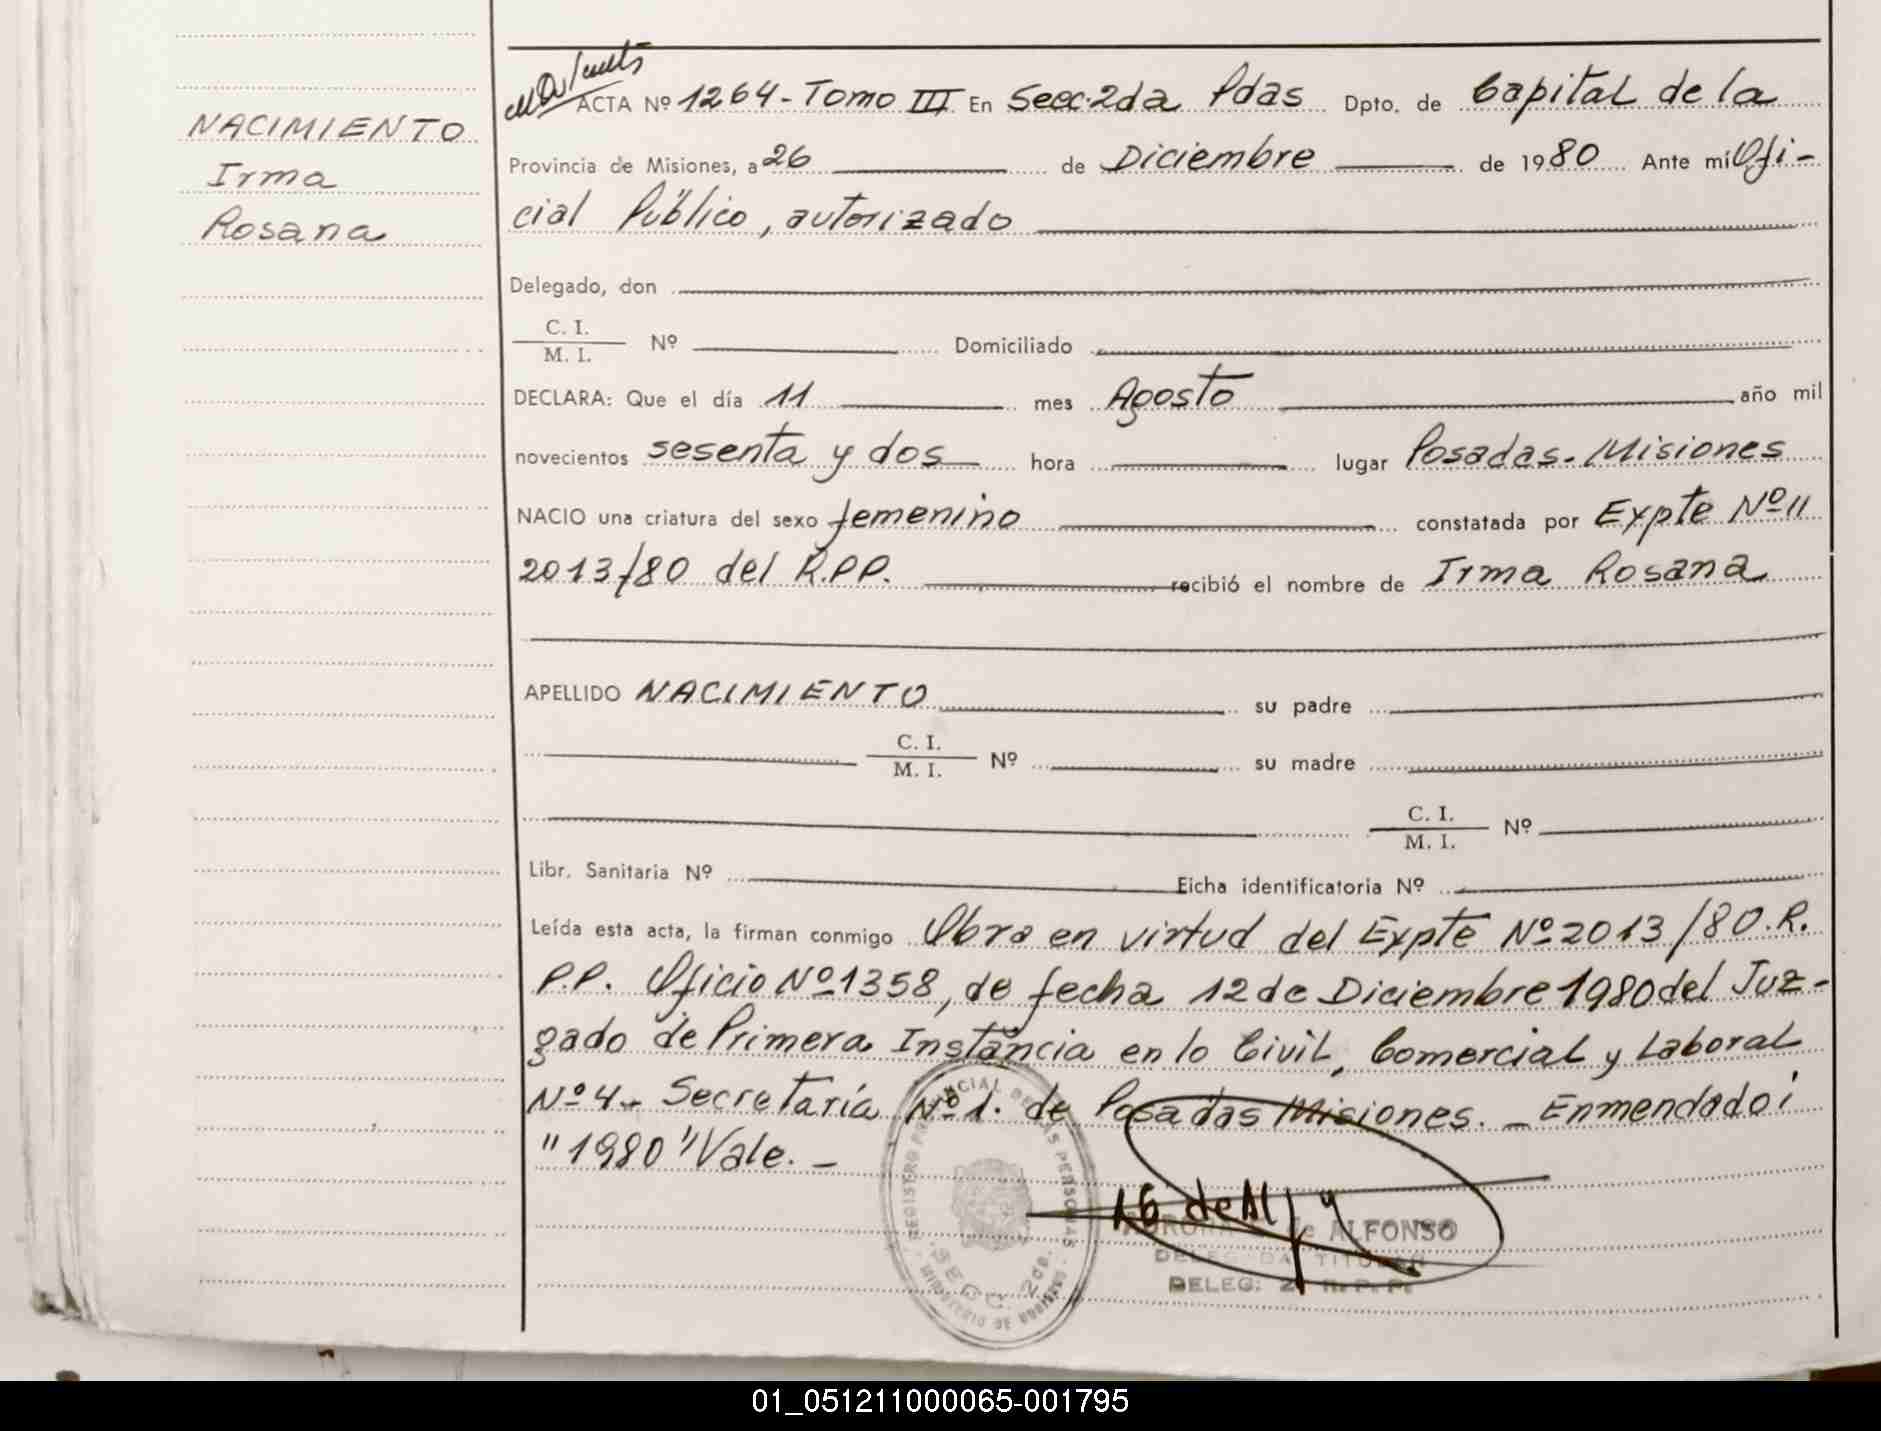 NACIMIENTO
Irma
Rosana
ACTA Nº 1264 - Tomo III En Secc. 2da Pdas Dpto. de Capital de la
Provincia de Misiones, a 26 de Diciembre de 1980 Ante mí Ofi-
cial Público, autorizado
Delegado, don
C. I.
M. I. Nº Domiciliado
DECLARA: Que el día 11 mes Agosto año mil
novecientos sesenta y dos hora lugar Posadas. Misiones
NACIO una criatura del sexo femenino constatada por Expte Nº 11
2013/80 del R.P.P. recibió el nombre de Irma Rosana
APELLIDO NACIMIENTO su padre
C. I.
M. I. Nº su madre
C. I.
M. I. Nº
Libr. Sanitaria Nº Ficha identificatoria Nº
Leída esta acta, la firman conmigo Obra en virtud del Expte Nº 2013/80.R.
P.P. Oficio Nº 1358, de fecha 12 de Diciembre 1980 del Juz-
gado de Primera Instancia en lo Civil, Comercial y Laboral
Nº 4 - Secretaría Nº 1. de Posadas Misiones. _ Enmendado:
"1980" Vale. -
REGISTRO PROVINCIAL DE LAS PERSONAS
SECC. 2da.
MINISTERIO DE GOBIERNO
de ALFONSO
TITULAR
DELEG: 2 R. P. P.
01_051211000065-001795